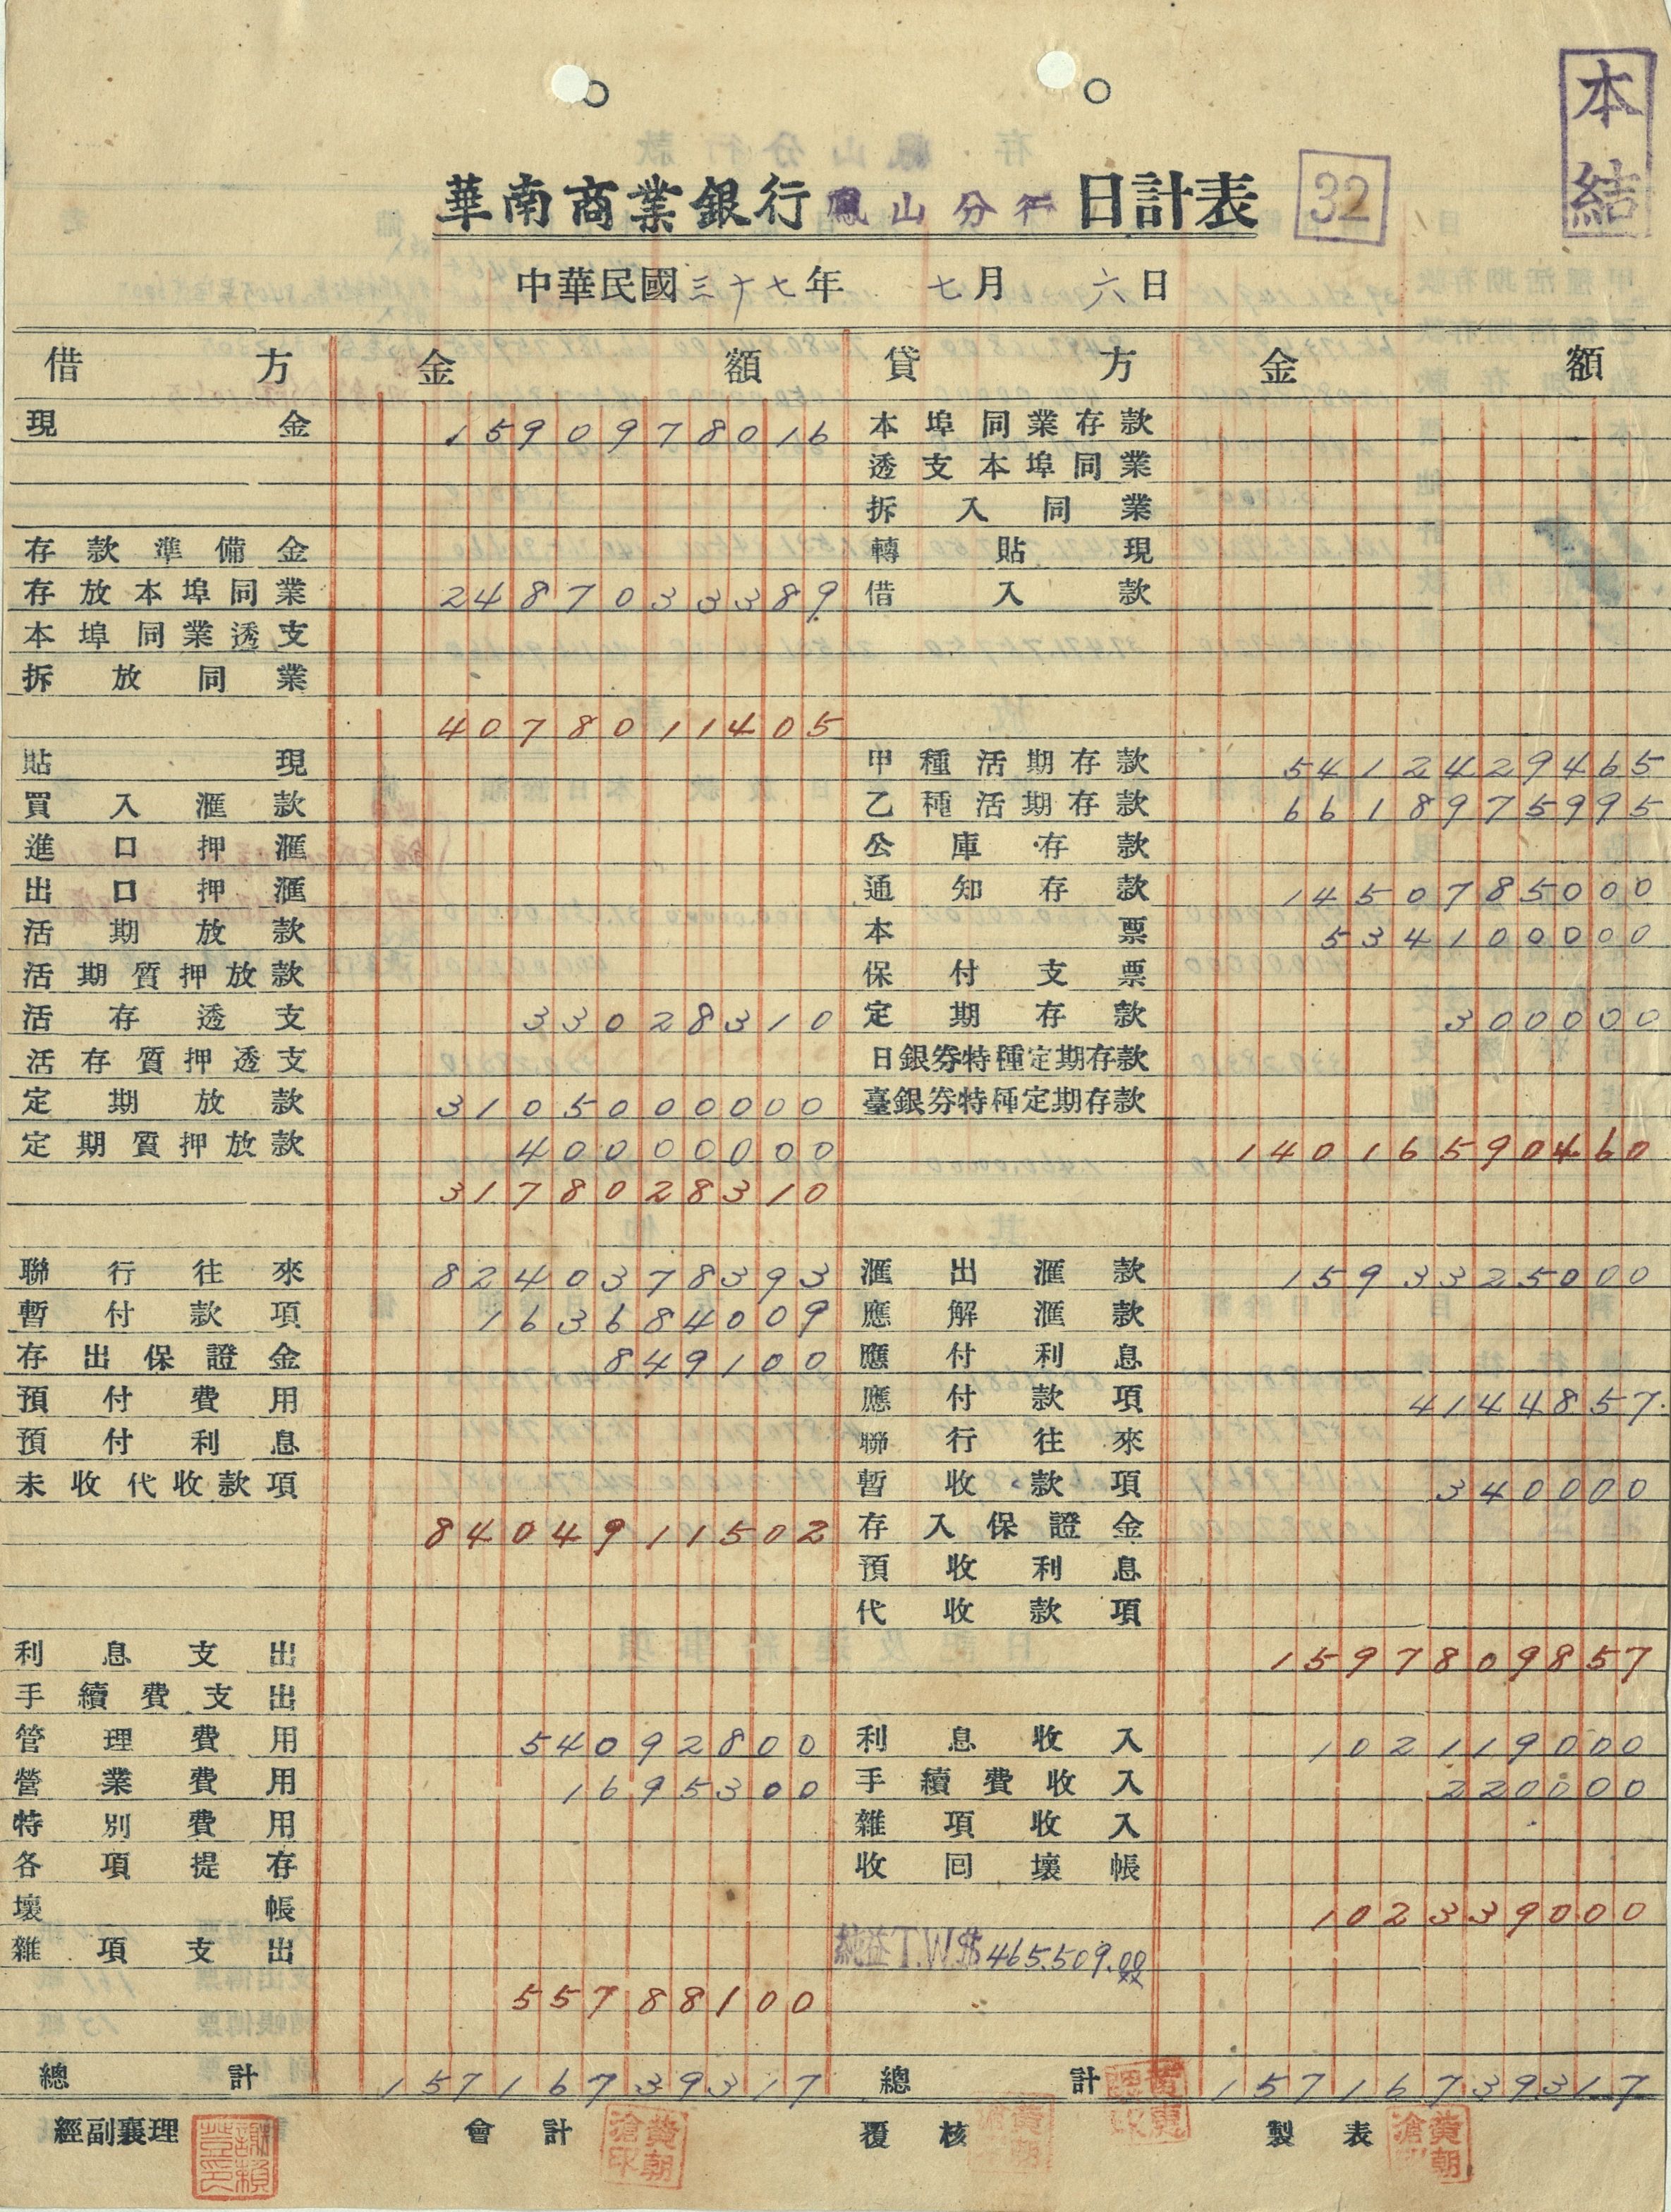 本結
華南商業銀行鳳山分行日計表 32
中華民國三十七年 七月 六日
借方 金額 貸方 金額
現金 1590978016 本埠同業存款
透支本埠同業
拆入同業
存款準備金 轉貼現
存放本埠同業 2487033389 借入款
本埠同業透支
拆放同業
4078011405
貼現 甲種活期存款 5412429465
買入滙款 乙種活期存款 6618975995
進口押滙 公庫存款
出口押滙 通知存款 1450785000
活期放款 本票 534100000
活期質押放款 保付支票
活存透支 33028310 定期存款 300000
活存質押透支 日銀券特種定期存款
定期放款 3105000000 臺銀券特種定期存款
定期質押放款 40000000 14016590460
3178028310
聯行往來 8240378393 滙出滙款 1593325000
暫付款項 163684009 應解滙款
存出保證金 849100 應付利息
預付費用 應付款項 4144857
預付利息 聯行往來
未收代收款項 暫收款項 340000
8404911502 存入保證金
預收利息
代收款項
利息支出 1597809857
手續費支出
管理費用 54092800 利息收入 102119000
營業費用 1695300 手續費收入 220000
特別費用 雜項收入
各項提存 收回壞帳
壞帳 102339000
雜項支出 純益T.W.$465.509.00
55788100
總計 15716739317 總計 15716739317
經副襄理 會計 黃朝滄印 覆核 黃朝滄印 製表 黃朝滄印